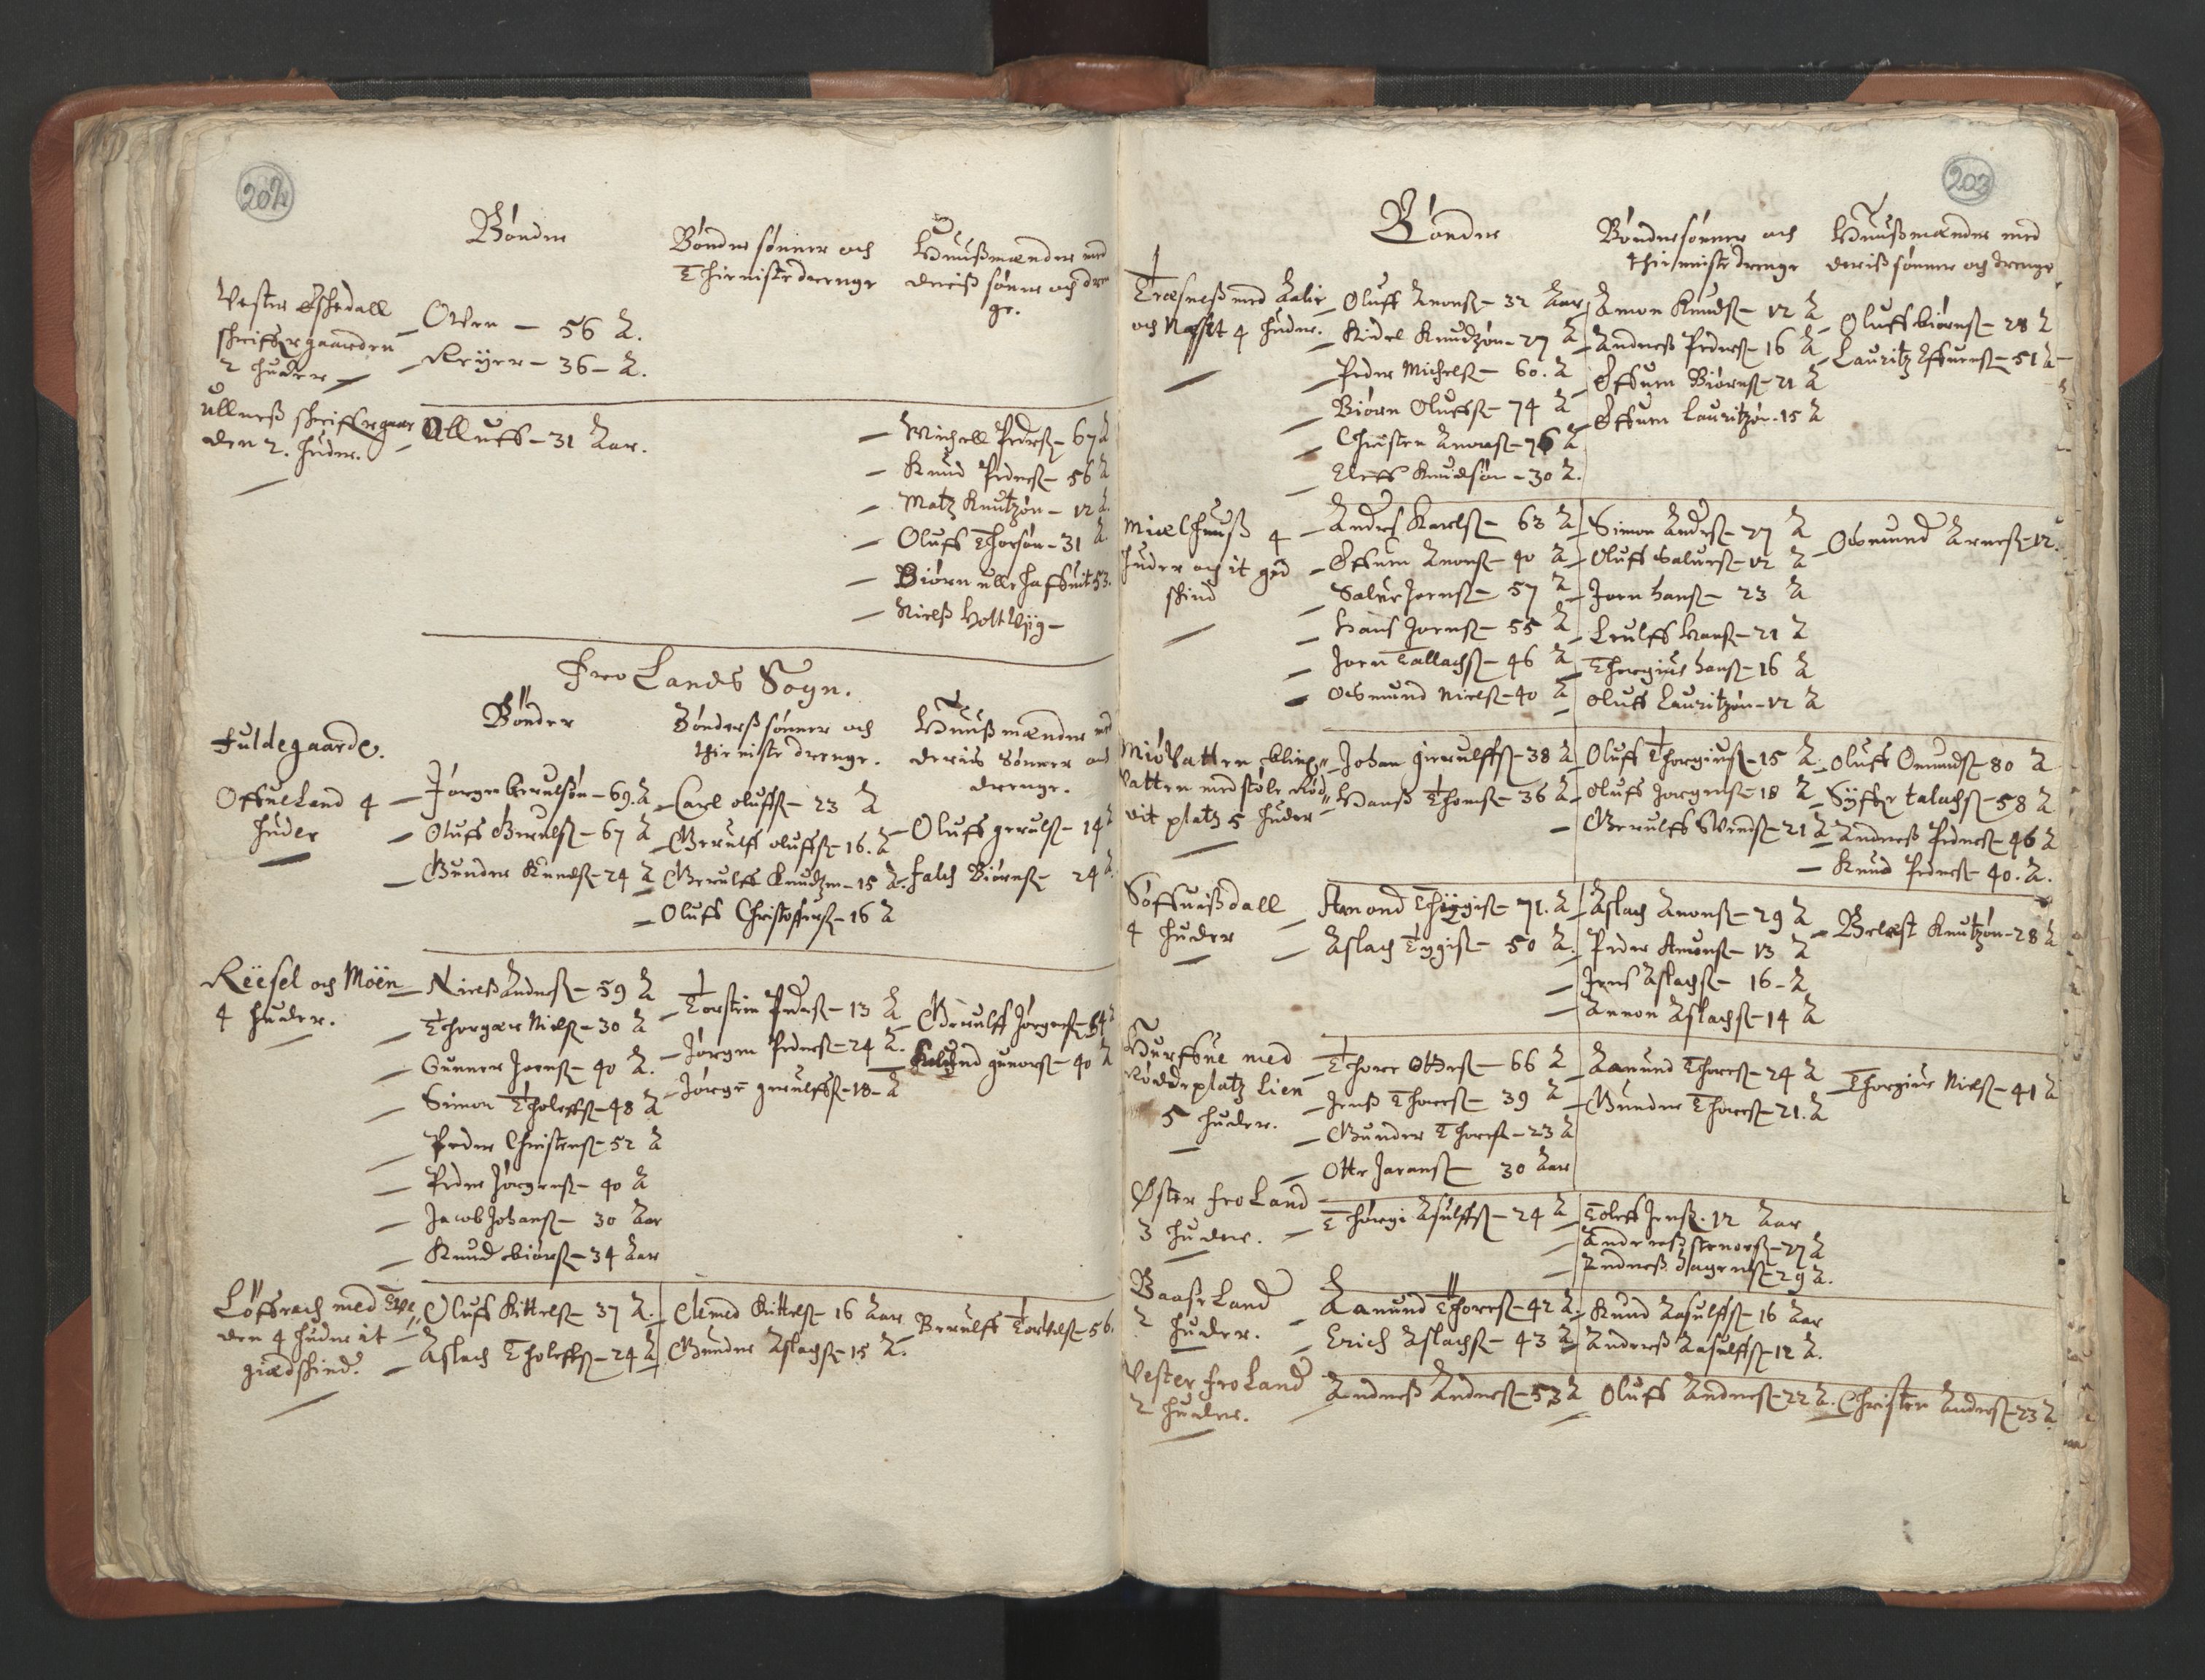 202
Bönder
Bönder sönner och
Thienistedrenge
Huußmænder med
deriß sönner och dren
ge.
Vester Eschedall
schiffergaarden
2 huder
Oven – 56 A.
Reyer – 36 – A.
Ullneß schiffergaar
den 2. huder.
Olluff – 31 Aar.
Michell Peders – 67 A
Knud Peders – 56 A
Matz Knutzön – 12 A.
Oluff Thorsön – 31 A
Biörn ulle haffuit 53.
Nielß Holt Vÿg –
Fro Lands Sogn.
Fuldegaarde.
Bönder
Bönderß sönner och
thieniste drenge.
Huußmænder med
deris Sönner och
drenge.
OffueLand 4
huder
Jörgen Gerulsön – 69. A
Oluff Geruls – 67 A
Gunder Knuds – 24 A
Carl oluffs – 23 A
Gerulff oluffs – 16. A
Gerulff Knudzøn – 15 A.
Oluff Christoffers – 16 A
Oluff geruls – 14 A
falch Biörns – 24 A.
Reësel och Möen
4 huder.
Nielß Anders – 59 A
Thorger Niels – 30 A
Gunner Joens – 40 A.
Simon Tholeffs – 48 A
Peder Christens – 52 A
Peder Jörgens – 40 A
Jacob Johans – 30 Aar
Knud biörs – 34 Aar
Torstein Peders – 13 A
Jörgen Peders – 24 A.
Jörgen gerulffs – 18 – A
Gerulff Jörgens – 54 A
gunors – 40 A
Löffrach med
den 4 huder it
giedskind.
Oluff Kittels – 37 A.
Aslach Tholeffs – 24 A
Clemed Kittels – 16 Aar
Gunder Aslachs – 15 A.
Berulff Torkels – 56.
203
Bönder
Bönder sönner och
thieniste drenge
Huußmænder med
deriß sönner och drenge
Træsneß med
och 4 huder.
Oluff Anons – 32 Aar
Kidel Knudzön – 27 A
Peder Michels – 60. A
Biörn Oluffs – 74 A
Christen Anons – 76 A
Eleff Knudsön – 30 A.
Amon Knuds – 12 A
Andreß Peders – 16 A
Effuen Biörns – 21 A
Effuen Lauritzøn – 15 A
Oluff biörns – 28 A
Lauritz Effuens – 51 A
Mielhuuß 4
huder och it gied
skind
Anders Karls – 63 A
Effuen Anons – 40 A
Salve Joens – 57 A
Hans Joens – 55 A
Joen Tallachs – 46 A
Osmund Niels – 40 A
Simon Anders – 27 A
Oluff Salvers – 12 A
Joen hans – 23 A
Leulff Hans – 21 A
Thorgius hans – 16 A
Oluff Lauritzøn – 12 A
Osmund Arnes – 12.
Miö Vatten bling"
Vatten med stöle Röd"
vit platz 5 huder
Johan gierulffs – 38 A
Hanß Thoms – 36 A
Oluff Thorgius – 15 A
oluff Jorgens – 18 A
Gerulff Svends – 21 A
Oluff Omunds – 80 A
Syffr talachs – 58 A
Andreß Peders – 46 A
Knud Peders – 40. A.
Söffuißdall
4 huder
Amond Thygis – 71. A
Aslach Tygis – 50 A
Aslach Anons – 29 A
Peder Amons – 13 A
Jens Aslachs – 16 – A
Annon Aslachs – 14 A
Knutzön – 28 A
Hurffue med
Röddeplatz lien
5 huder.
Thore Ottes – 66 A
Jens Thores – 39 A
Gunder Thores – 23 A
Otte Jorans – 30 Aar
Aanund Thores – 24 A
Gunder Thores – 21. A
Thorgius Niels – 41 A
Öster FroLand
3 huder.
Thörgi Asulffs – 24 A
Toleff Jens. 12 Aar
Anderß stenors – 27 A
Andreß Aagens – 29 A.
BaaseLand
2 huder.
Aanund Thores – 42 A
Erich Aslachs – 43 A
Knud Aasulffs – 16 Aar
Anders Aasulffs – 12 A.
Vester FroLand
2 huder.
Andreß Anders – 53 A
Oluff Anders – 22 A.
Christen Anders – 23 A